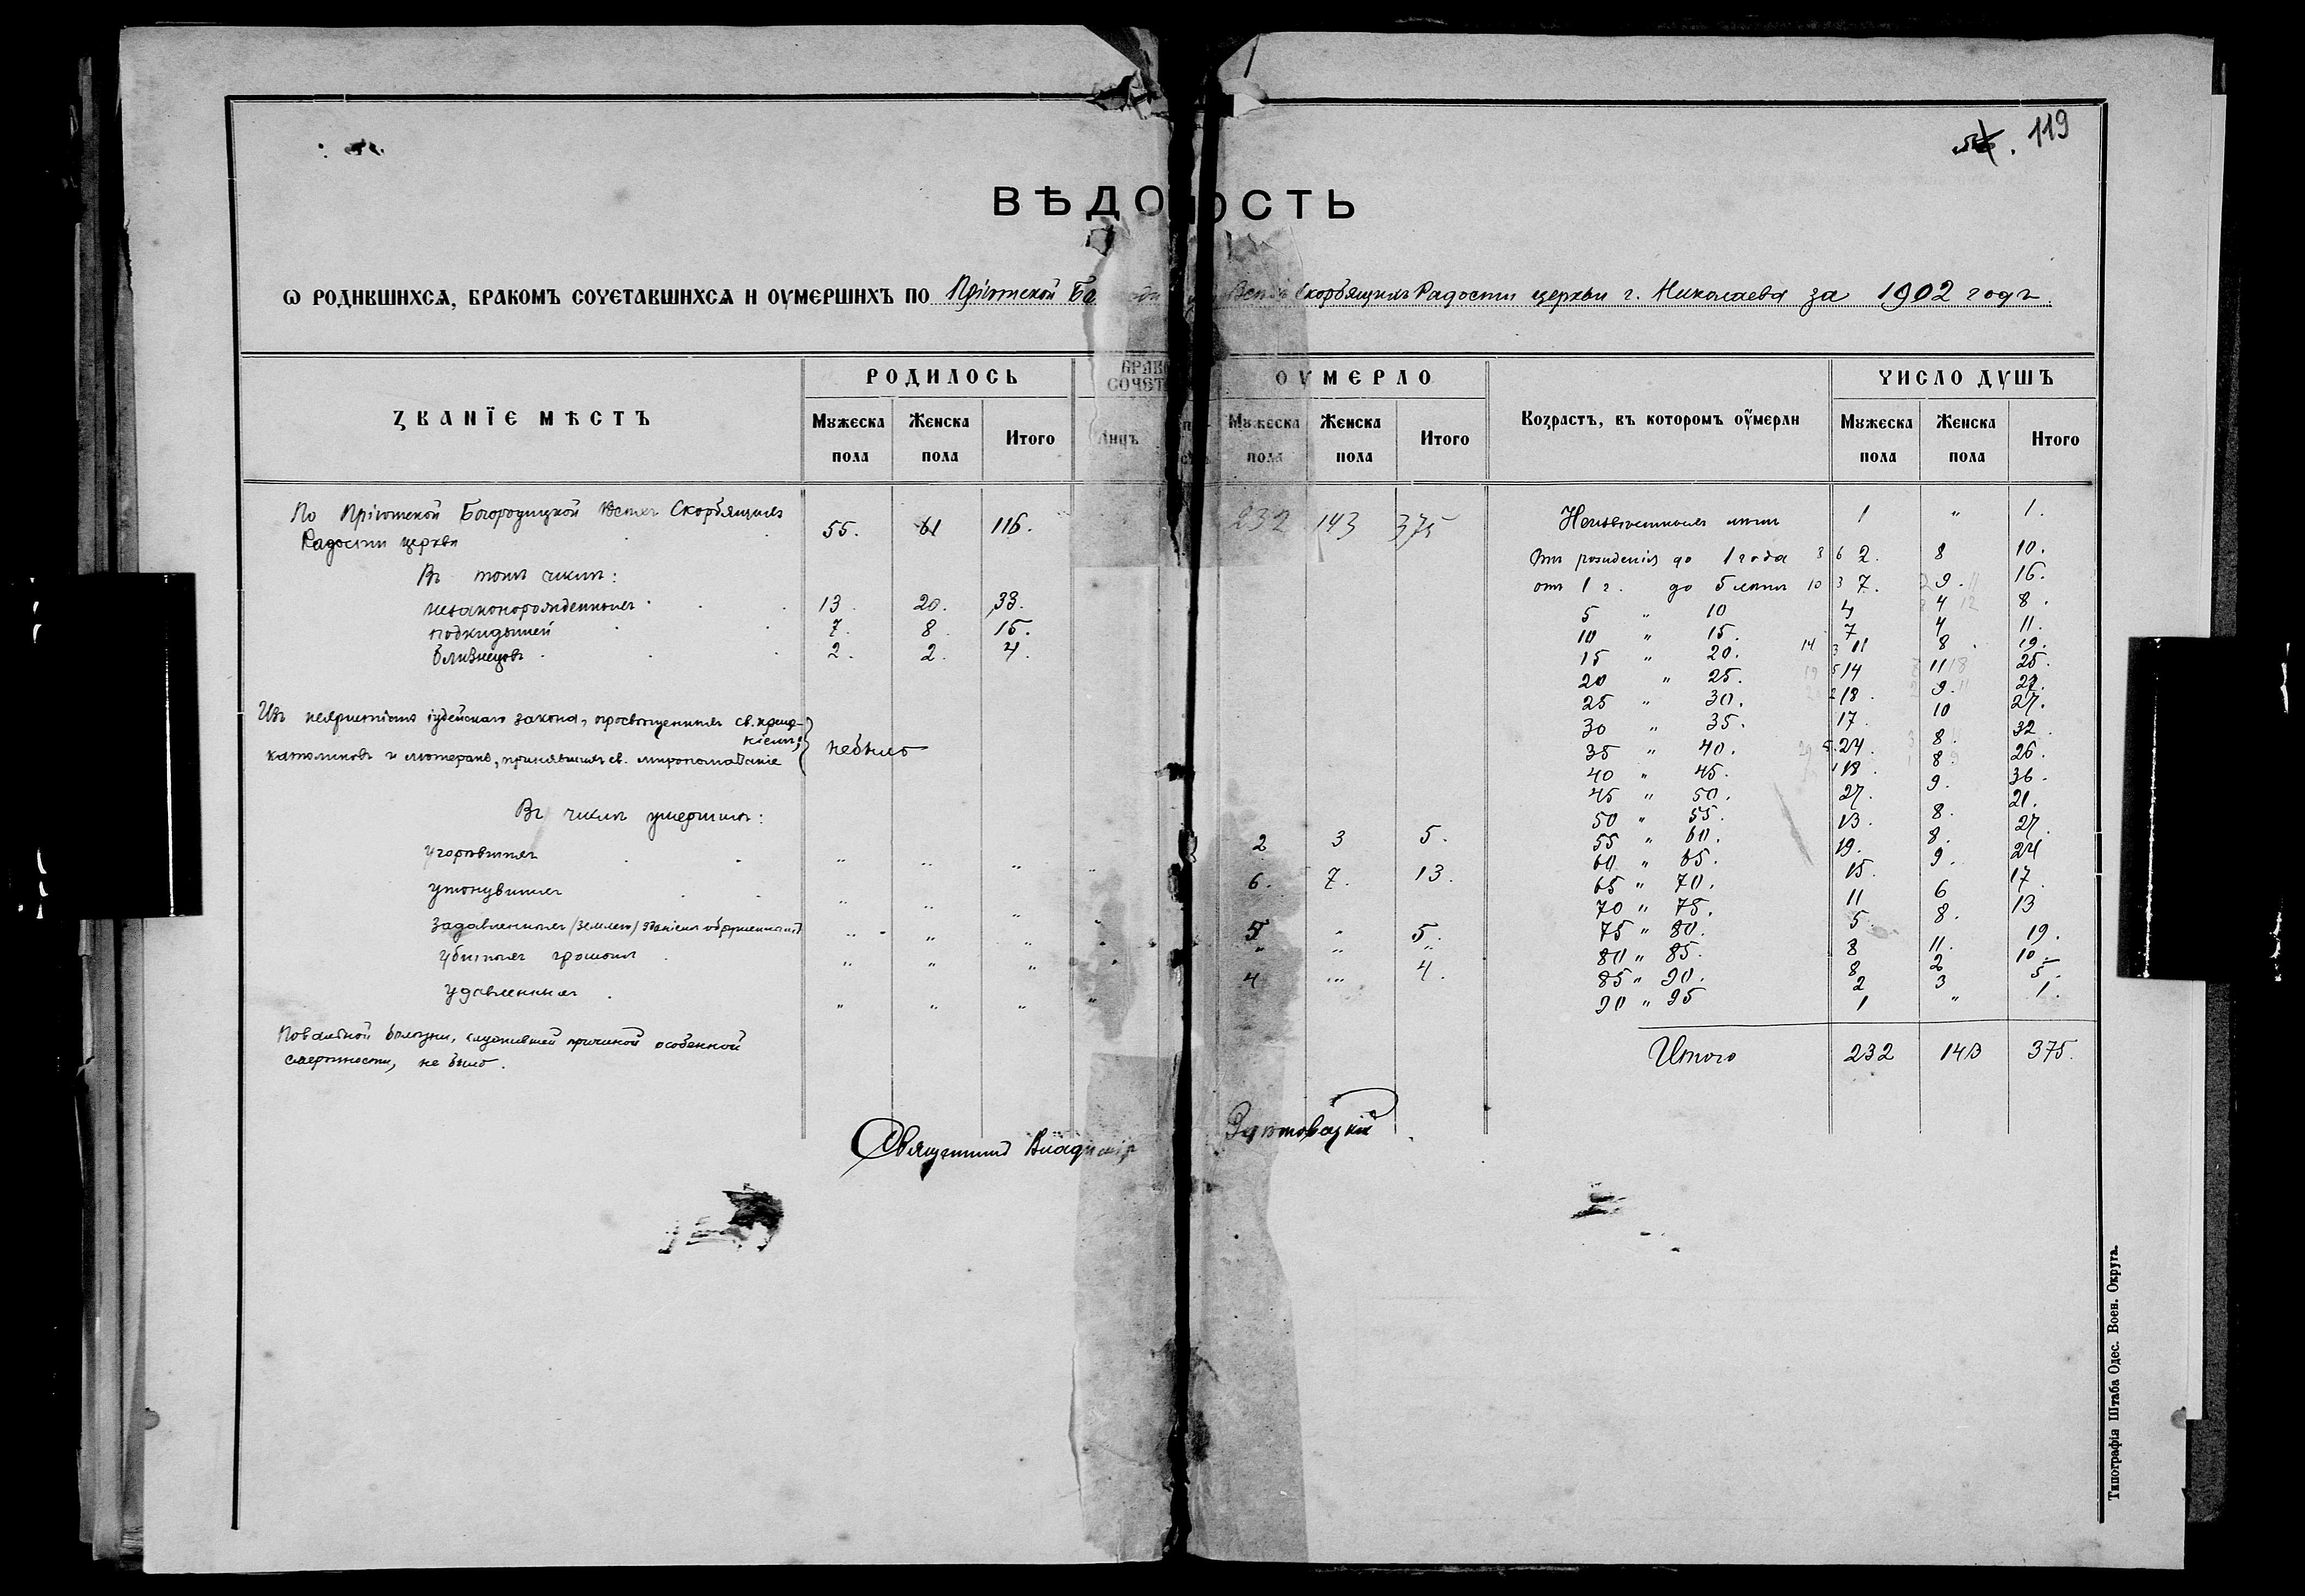 119
ВѢДО ОСТЬ
Ѡ РОДИВШИХСѦ, БРАКОМЪ СОЧЕТАВШИХСѦ И ОУМЕРШИХЪ ПО Пріютской Бо Всѣхъ Скорбящихъ Радости церкви г. Николаева за 1902 годъ.
ЗВАНЇЕ МѢСТЪ
РОДИЛОСЬ
Мужеска пола
Женска пола
Итого
БРАК
СОЧЕТ
Лицъ
ОУМЕРЛО
Мужеска пола
Женска пола
Итого
Возрастъ, въ которомъ оумерли
ЧИСЛО ДУШЪ
Мужеска пола
Женска пола
Итого
По Пріютской Богородицкой Всѣхъ Скорбящихъ
Радости церкви 55. 61 116. 232 143 375
Въ томъ числѣ:
незаконорожденныхъ 13. 20. 33.
подкидышей 7. 8. 15.
близнецовъ 2. 2. 4.
Изъ нехристіанъ іудейскаго закона, просвѣщенныхъ св. креще-
ніемъ;
католиковъ и лютеранъ, принявшихъ св. миропомазаніе } небыло
Въ числѣ умершихъ:
угорѣвшихъ " " " " 2 3 5.
утонувшихъ " " " " 6. 7. 13.
задавленныхъ (землею) зданіемъ " " " " 5 " 5.
убитыхъ громомъ " " " " " " "
удавленныхъ " " " " 4 " 4.
Повальной болѣзни, служившей причиной особенной
смертности, не было.
Неизвѣстныхъ лѣтъ 1 " 1.
Отъ рожденія до 1 года 2. 8 10.
отъ 1 г. до 5 лѣтъ 7. 9. 16.
5 " 10 4 4 8.
10 " 15. 7 4 11.
15 " 20. 11 8. 19.
20 " 25. 14 11 25.
25 " 30. 18. 9. 27.
30 " 35. 17. 10 27.
35 " 40. 24. 8. 32.
40 " 45. 18. 8. 26.
45 " 50. 27. 9. 36.
50 " 55. 13. 8. 21.
55 " 60. 19. 8. 27.
60 " 65. 15. 9. 24
65 " 70. 11 6 17.
70 " 75. 5. 8. 13
75 " 80. 8 11. 19.
80 " 85. 8 2 10.
85 " 90. 2 3 5.
90 " 95 1 " 1.
Итого 232 143 375.
Священникъ Владиміръ
Типографія Штаба Одес. Воен. Округа.